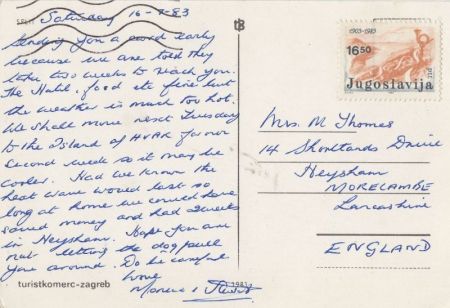 SPLIT
Saturday 16-7-83
Sending you a card early
because we are told they
take two weeks to reach you.
The Hotel, food etc fine but
the weather is much too hot.
We shall move next Tuesday
to the Island of HVAR for our
second week so it may be
cooler. Had we known the
heat wave would last so
long at home we could have
saved money and had 2 weeks
in Heysham. Hope you are
not letting the dog pull
you around. Do be careful
love
turistkomerc-zagreb
1903-1983
16.50
PTT
Jugoslavija
Mrs. M Thomas
14 Shortlands Drive
Heysham
MORECAMBE
Lancashire
ENGLAND